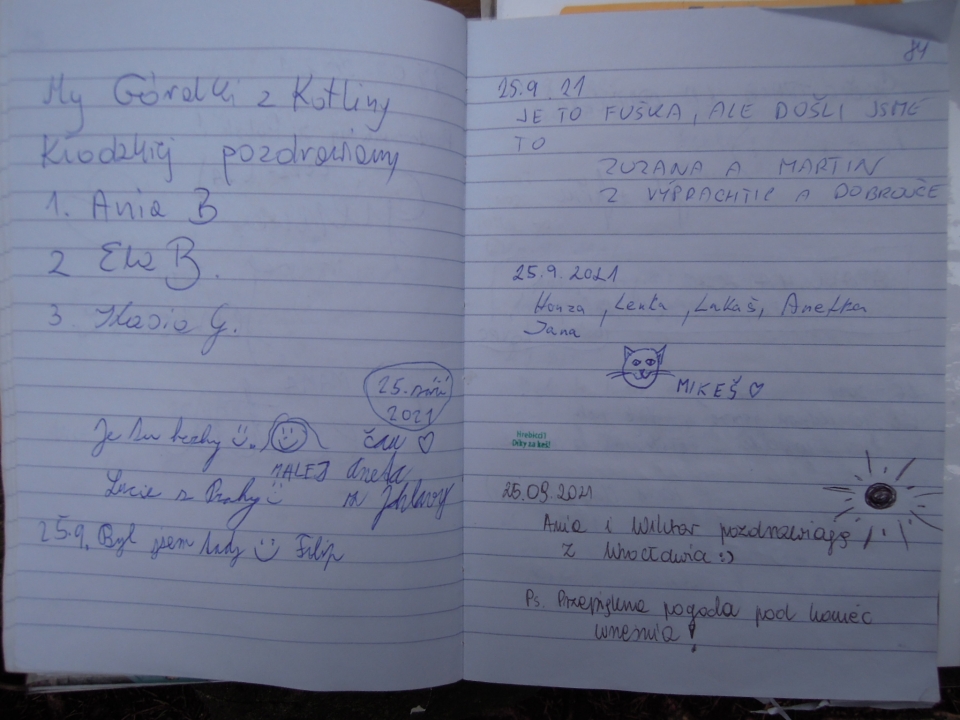 My Góralki z Kotliny
Kłodzkiej pozdrawiamy
1. Ania B
2 Ela B.
3. Kasia G.
25. září
2021
Je tu hezky
MALEJ
ČAU ♡
Aneta
Lucie z Prahy
z Jihlavy
25.9. Byl jsem tady Filip
84
25.9.21
JE TO FUŠKA, ALE DOŠLI JSME
TO
ZUZANA A MARTIN
Z VÝPRACHTIC A DOBROUČE
25.9.2021
Honza, Lenka, Lukáš, Anetka
Jana
MIKEŠ ♡
Hrebicci!
Díky za keš!
25.09.2021
Ania i Wiktor pozdrawiają
z Wrocławia :)
Ps. Przepiękna pogoda pod koniec
września!